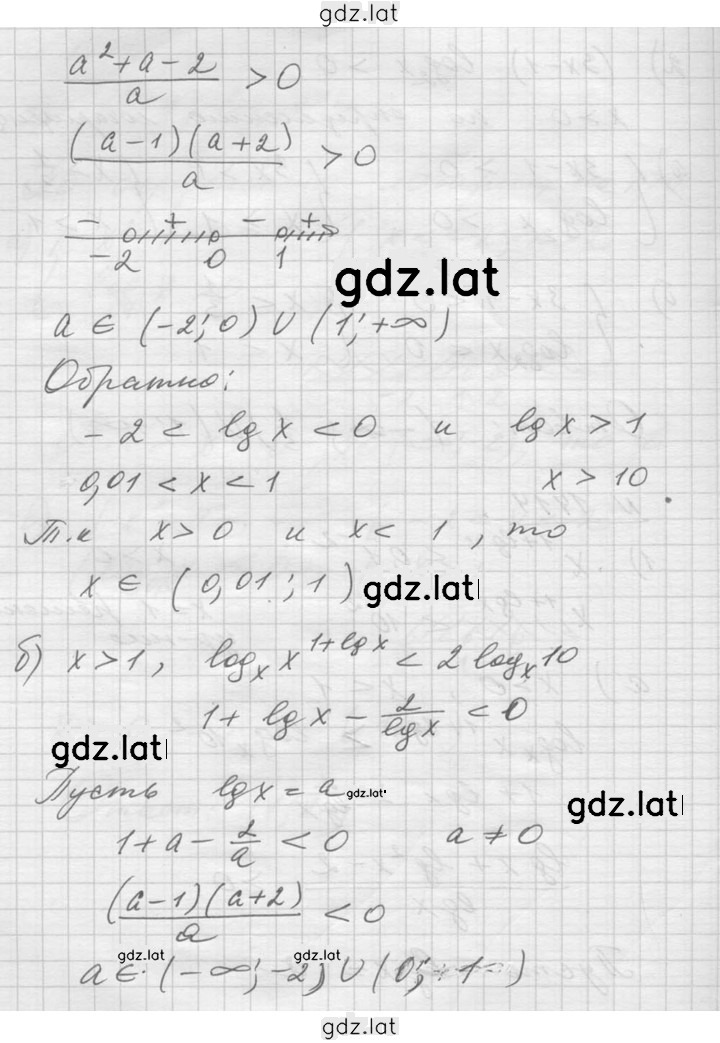 gdz.lat
a² + a - 2 / a > 0
(a - 1)(a + 2) / a > 0
- + - +
-2 0 1
gdz.lat
a ∈ (-2; 0) ∪ (1; +∞)
Обратно:
-2 < lg x < 0 и lg x > 1
0,01 < x < 1 x > 10
Т.к x > 0 и x < 1, то
x ∈ (0,01; 1) gdz.lat
б) x > 1, log_x x^(1+lg x) < 2 log_x 10
1 + lg x - 2/lg x < 0
gdz.lat
Пусть lg x = a gdz.lat
gdz.lat
1 + a - 2/a < 0 a ≠ 0
(a - 1)(a + 2) / a < 0
gdz.lat gdz.lat
a ∈ (-∞; -2) ∪ (0; 1)
gdz.lat